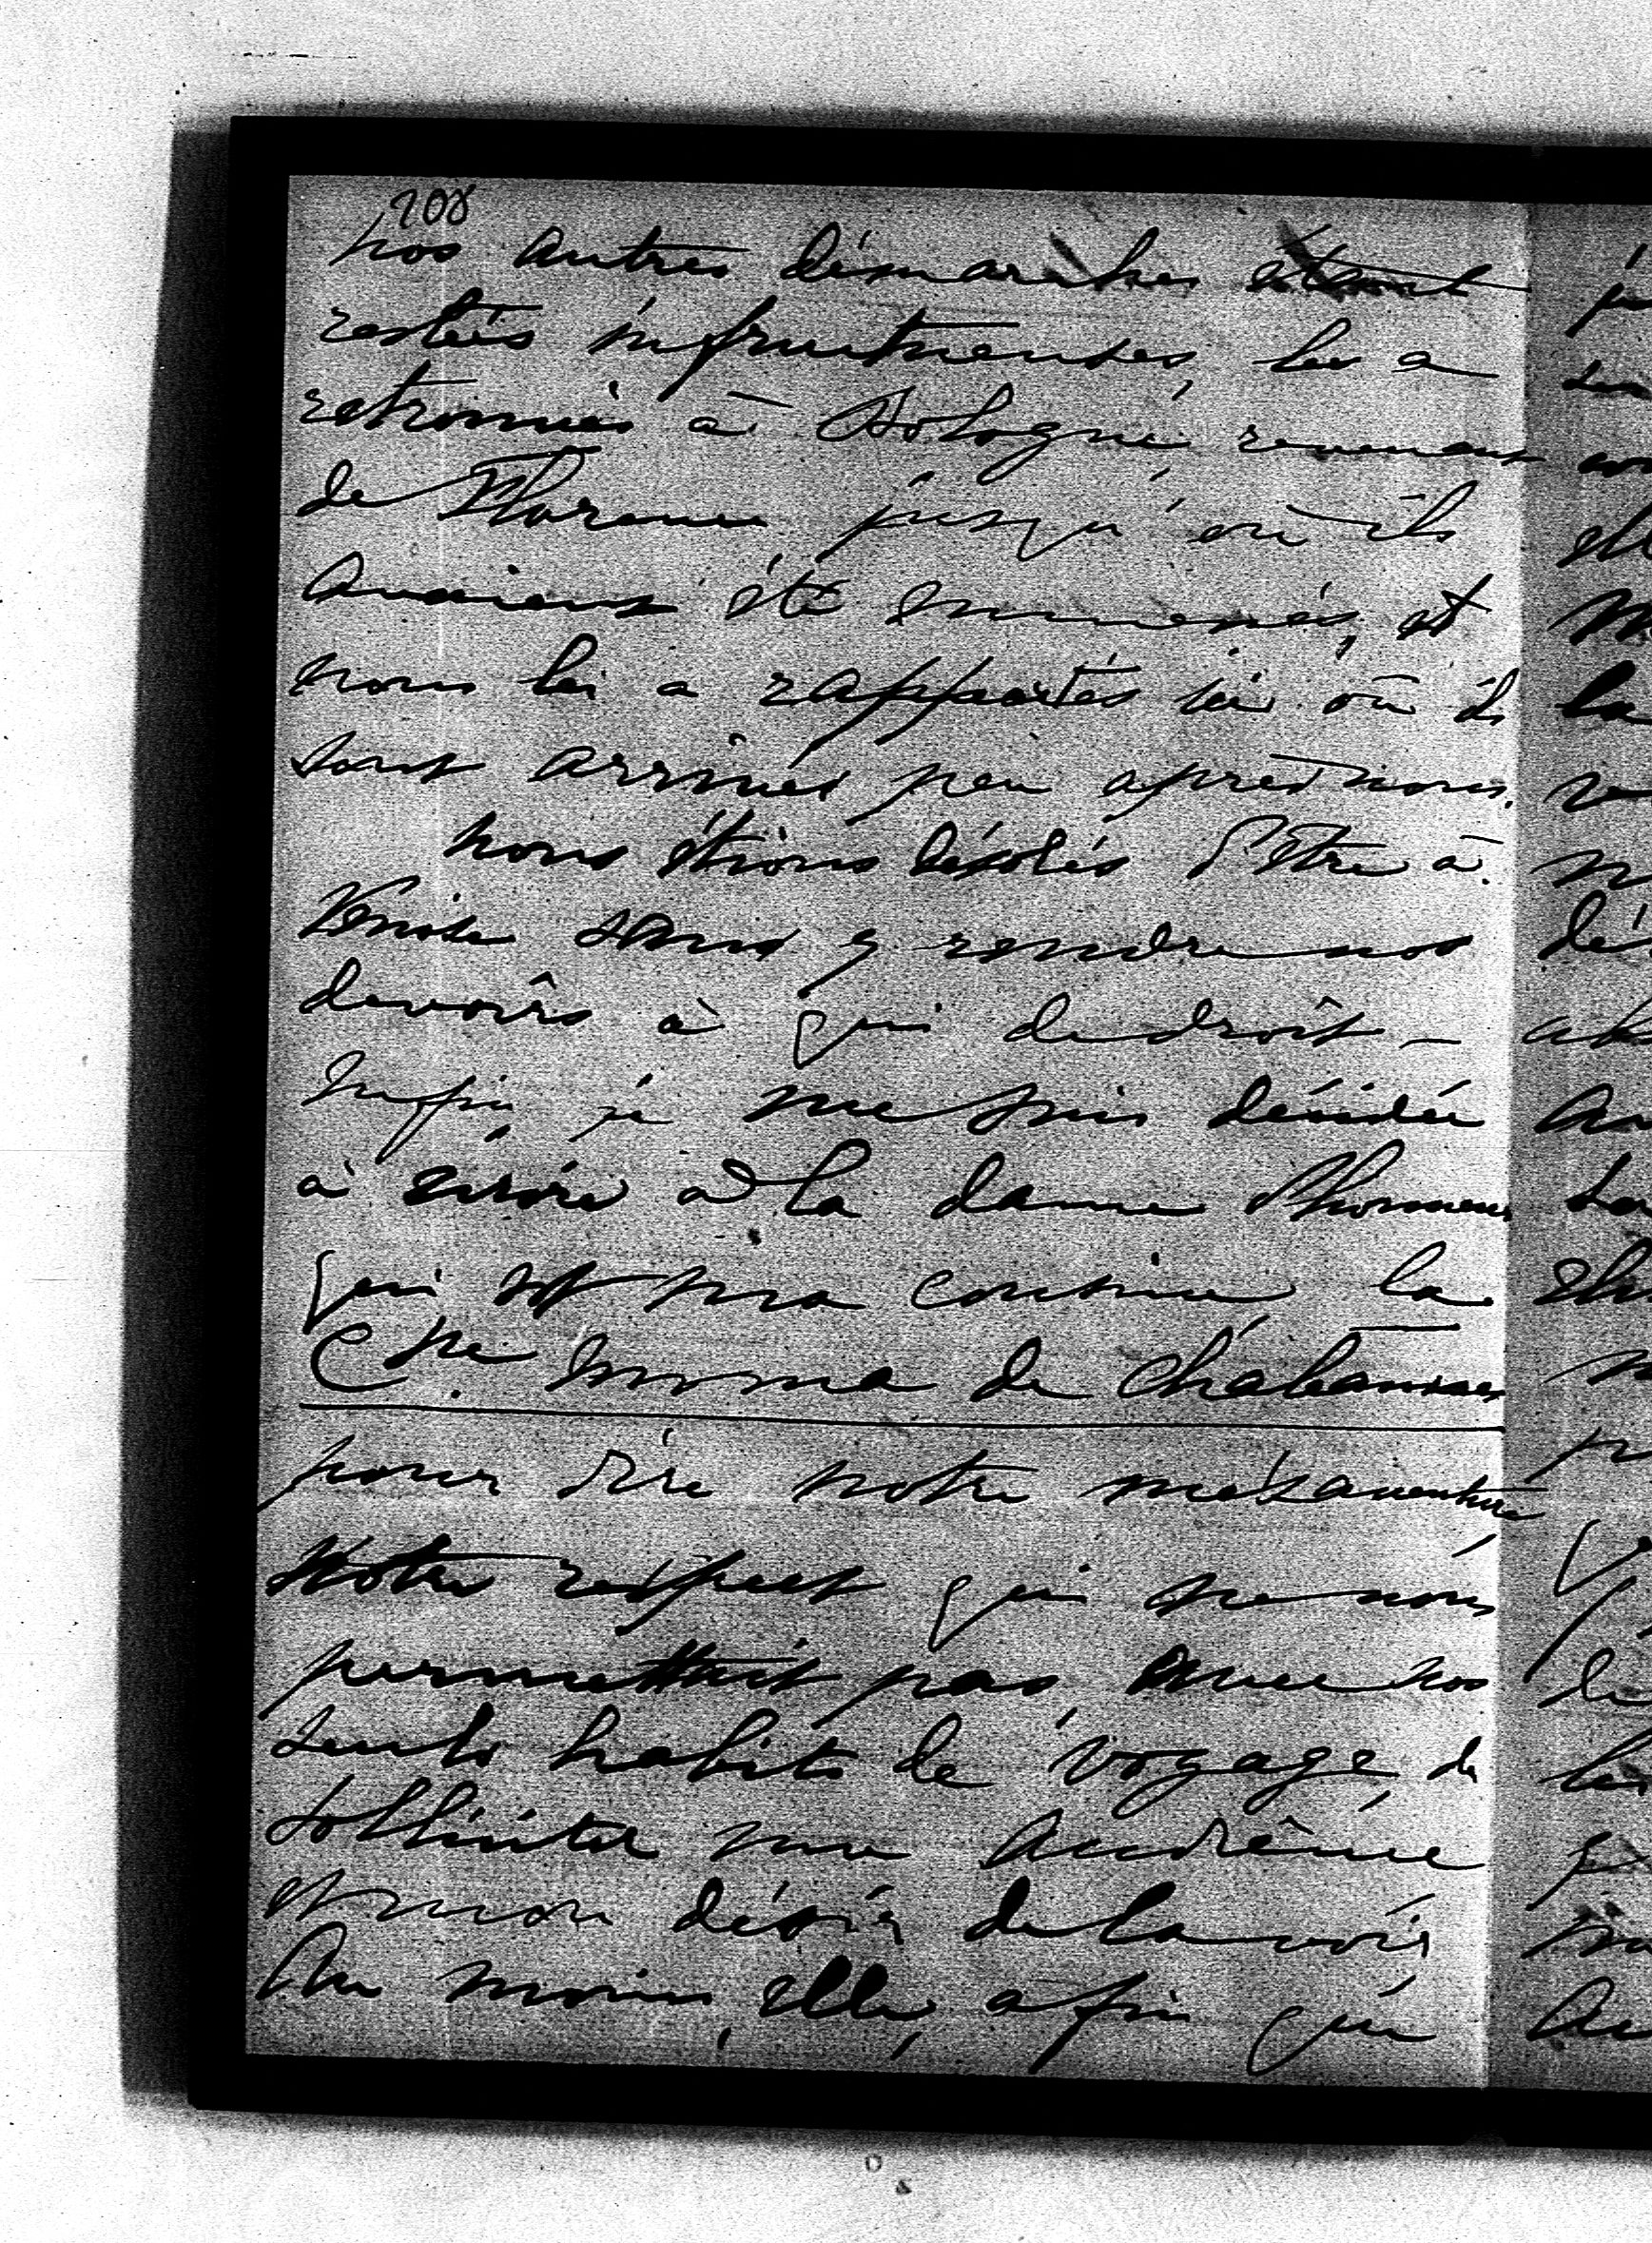 208
nos autres démarches étant
restées infructueuses, les a
retrouvés à Bologne, revenant
de Florence, jusqu'où ils
avaient été emmenés, et
nous les a rapportés ici où ils
sont arrivés peu après nous.
Nous étions désolés d'être à
Venise sans y rendre nos
devoirs à qui de droit —
Enfin, je me suis décidée
à écrire à la dame d'honneur
qui est ma cousine la
Ctesse Emma de Chabannes
pour dire notre mésaventure
Notre respect qui ne nous
permettait pas, avec nos
seuls habits de voyage, de
solliciter une audience
et mon désir de la voir
au moins, elle, afin que